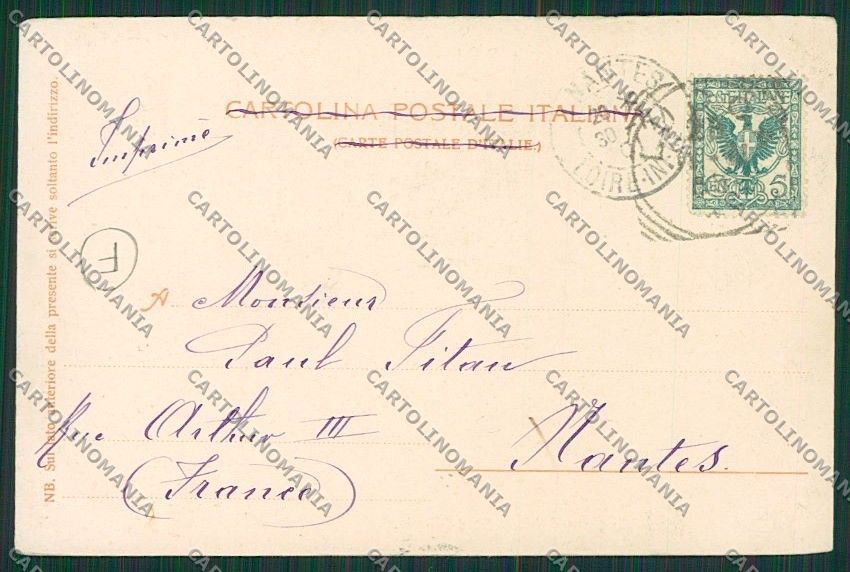 CARTOLINA POSTALE ITALIANA
(CARTE POSTALE D'ITALIE.)
Imprimé
NANTES
LOIRE-INF
5
F
A Monsieur
Paul Pitau
Rue Arthur III
Nantes.
(France)
NB. Sul lato anteriore della presente si scrive soltanto l'indirizzo.
CARTOLINOMANIA